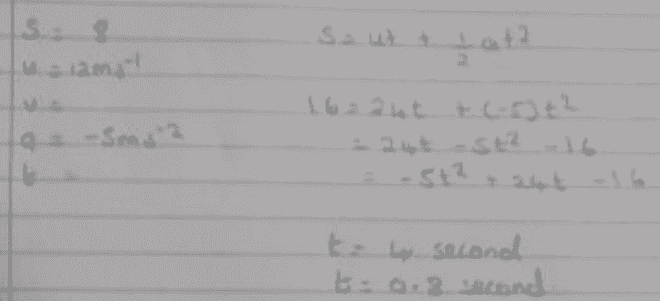 S = 8
u = 12ms⁻¹
v =
a = -5ms⁻²
t =
S = ut + 1/2 at²
16 = 24t + (-5)t²
= 24t - 5t² - 16
= -5t² + 24t - 16
t = 4 second
t = 0.8 second